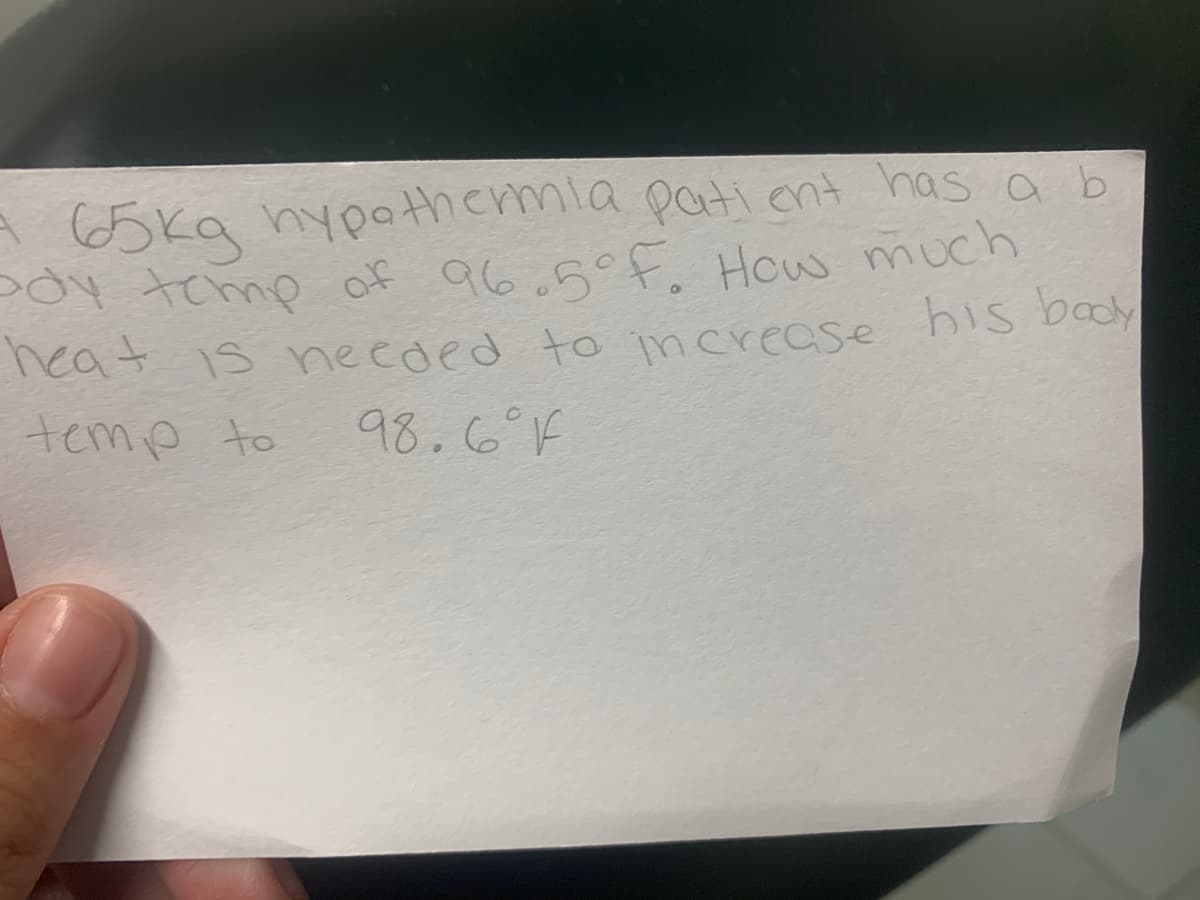 A 65kg hypothermia patient has a b
ody temp of 96.5°f. How much
heat is needed to increase his body
temp to 98.6°F